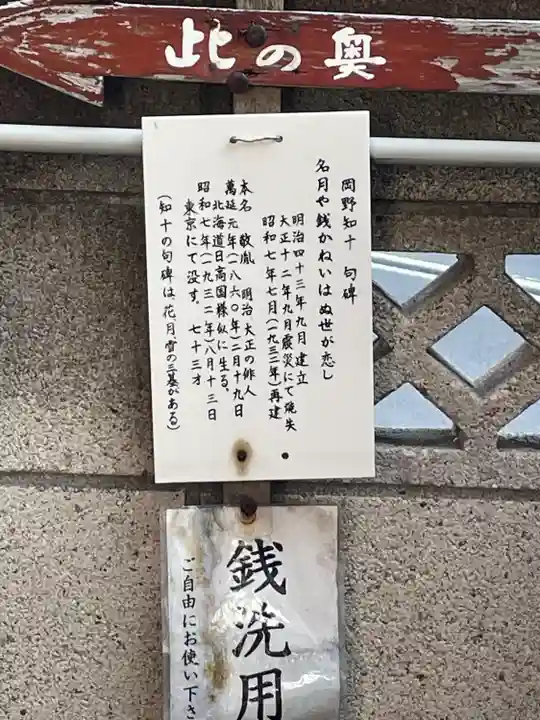 此の奥
岡野知十 句碑
名月や銭かねいはぬ世が恋し
明治四十三年九月 建立
大正十二年九月震災にて焼失
昭和七年七月(一九三二年)再建
本名 敬胤 明治 大正の俳人
萬延元年(一八六〇年)二月十九日
北海道日高国様似に生る。
昭和七年(一九三二年)八月十三日
東京にて没す。 七十三才
(知十の句碑は、花、月、雪の三基がある)
銭洗用
ご自由にお使い下さ